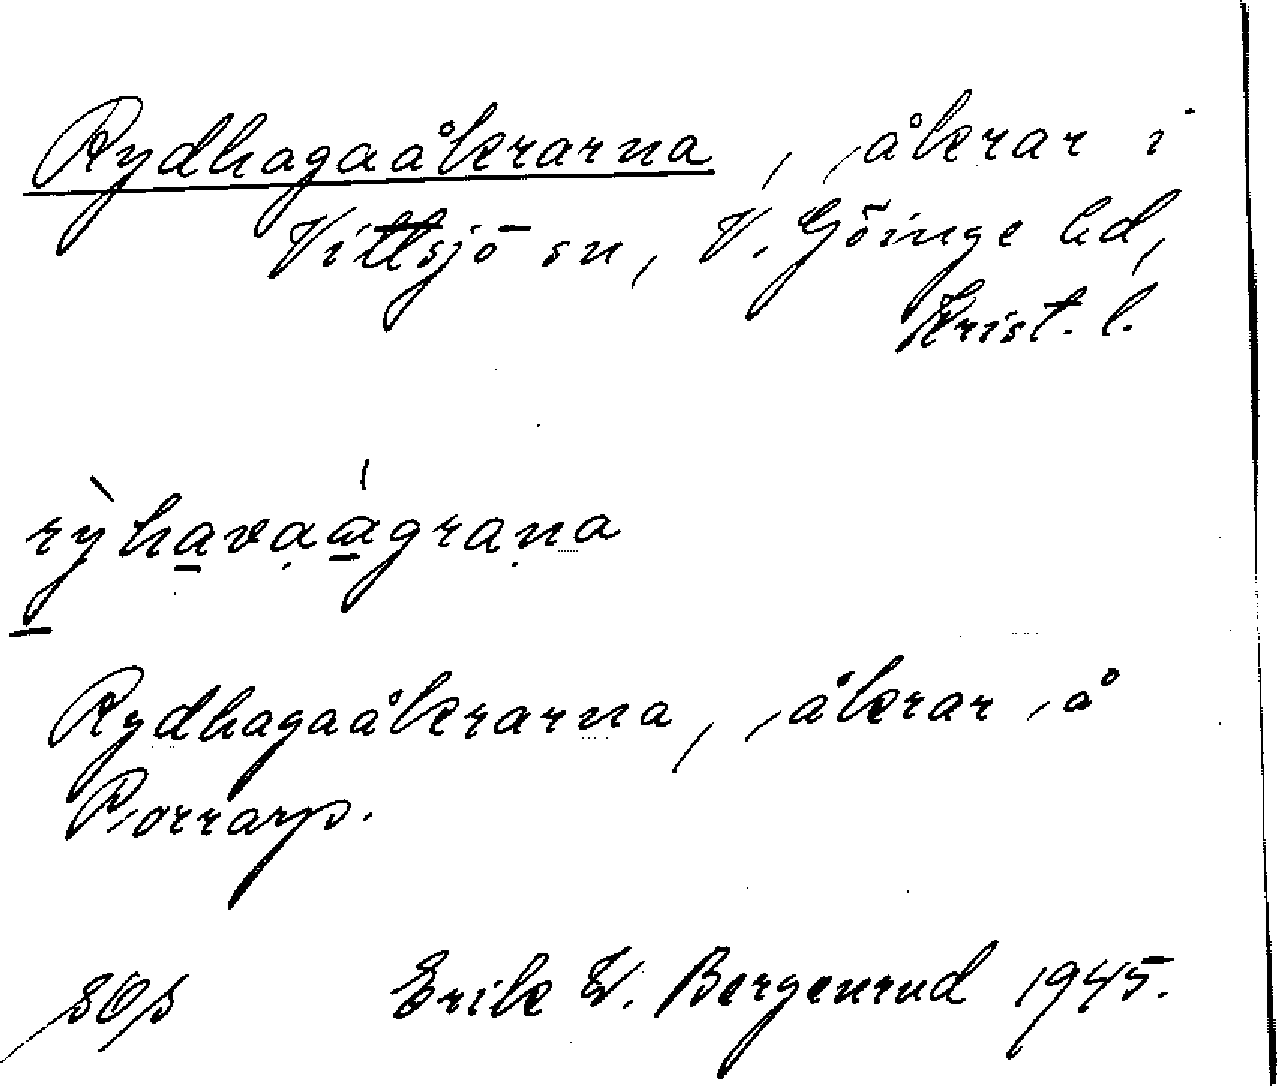 Rydhagaåkrarna, åkrar i
Vittsjö sn, V. Göinge hd,
Krist. l.
rỳhavaágrana
Rydhagaåkrarna, åkrar å
Porrarp.
Erik W. Bergenrud 1945.